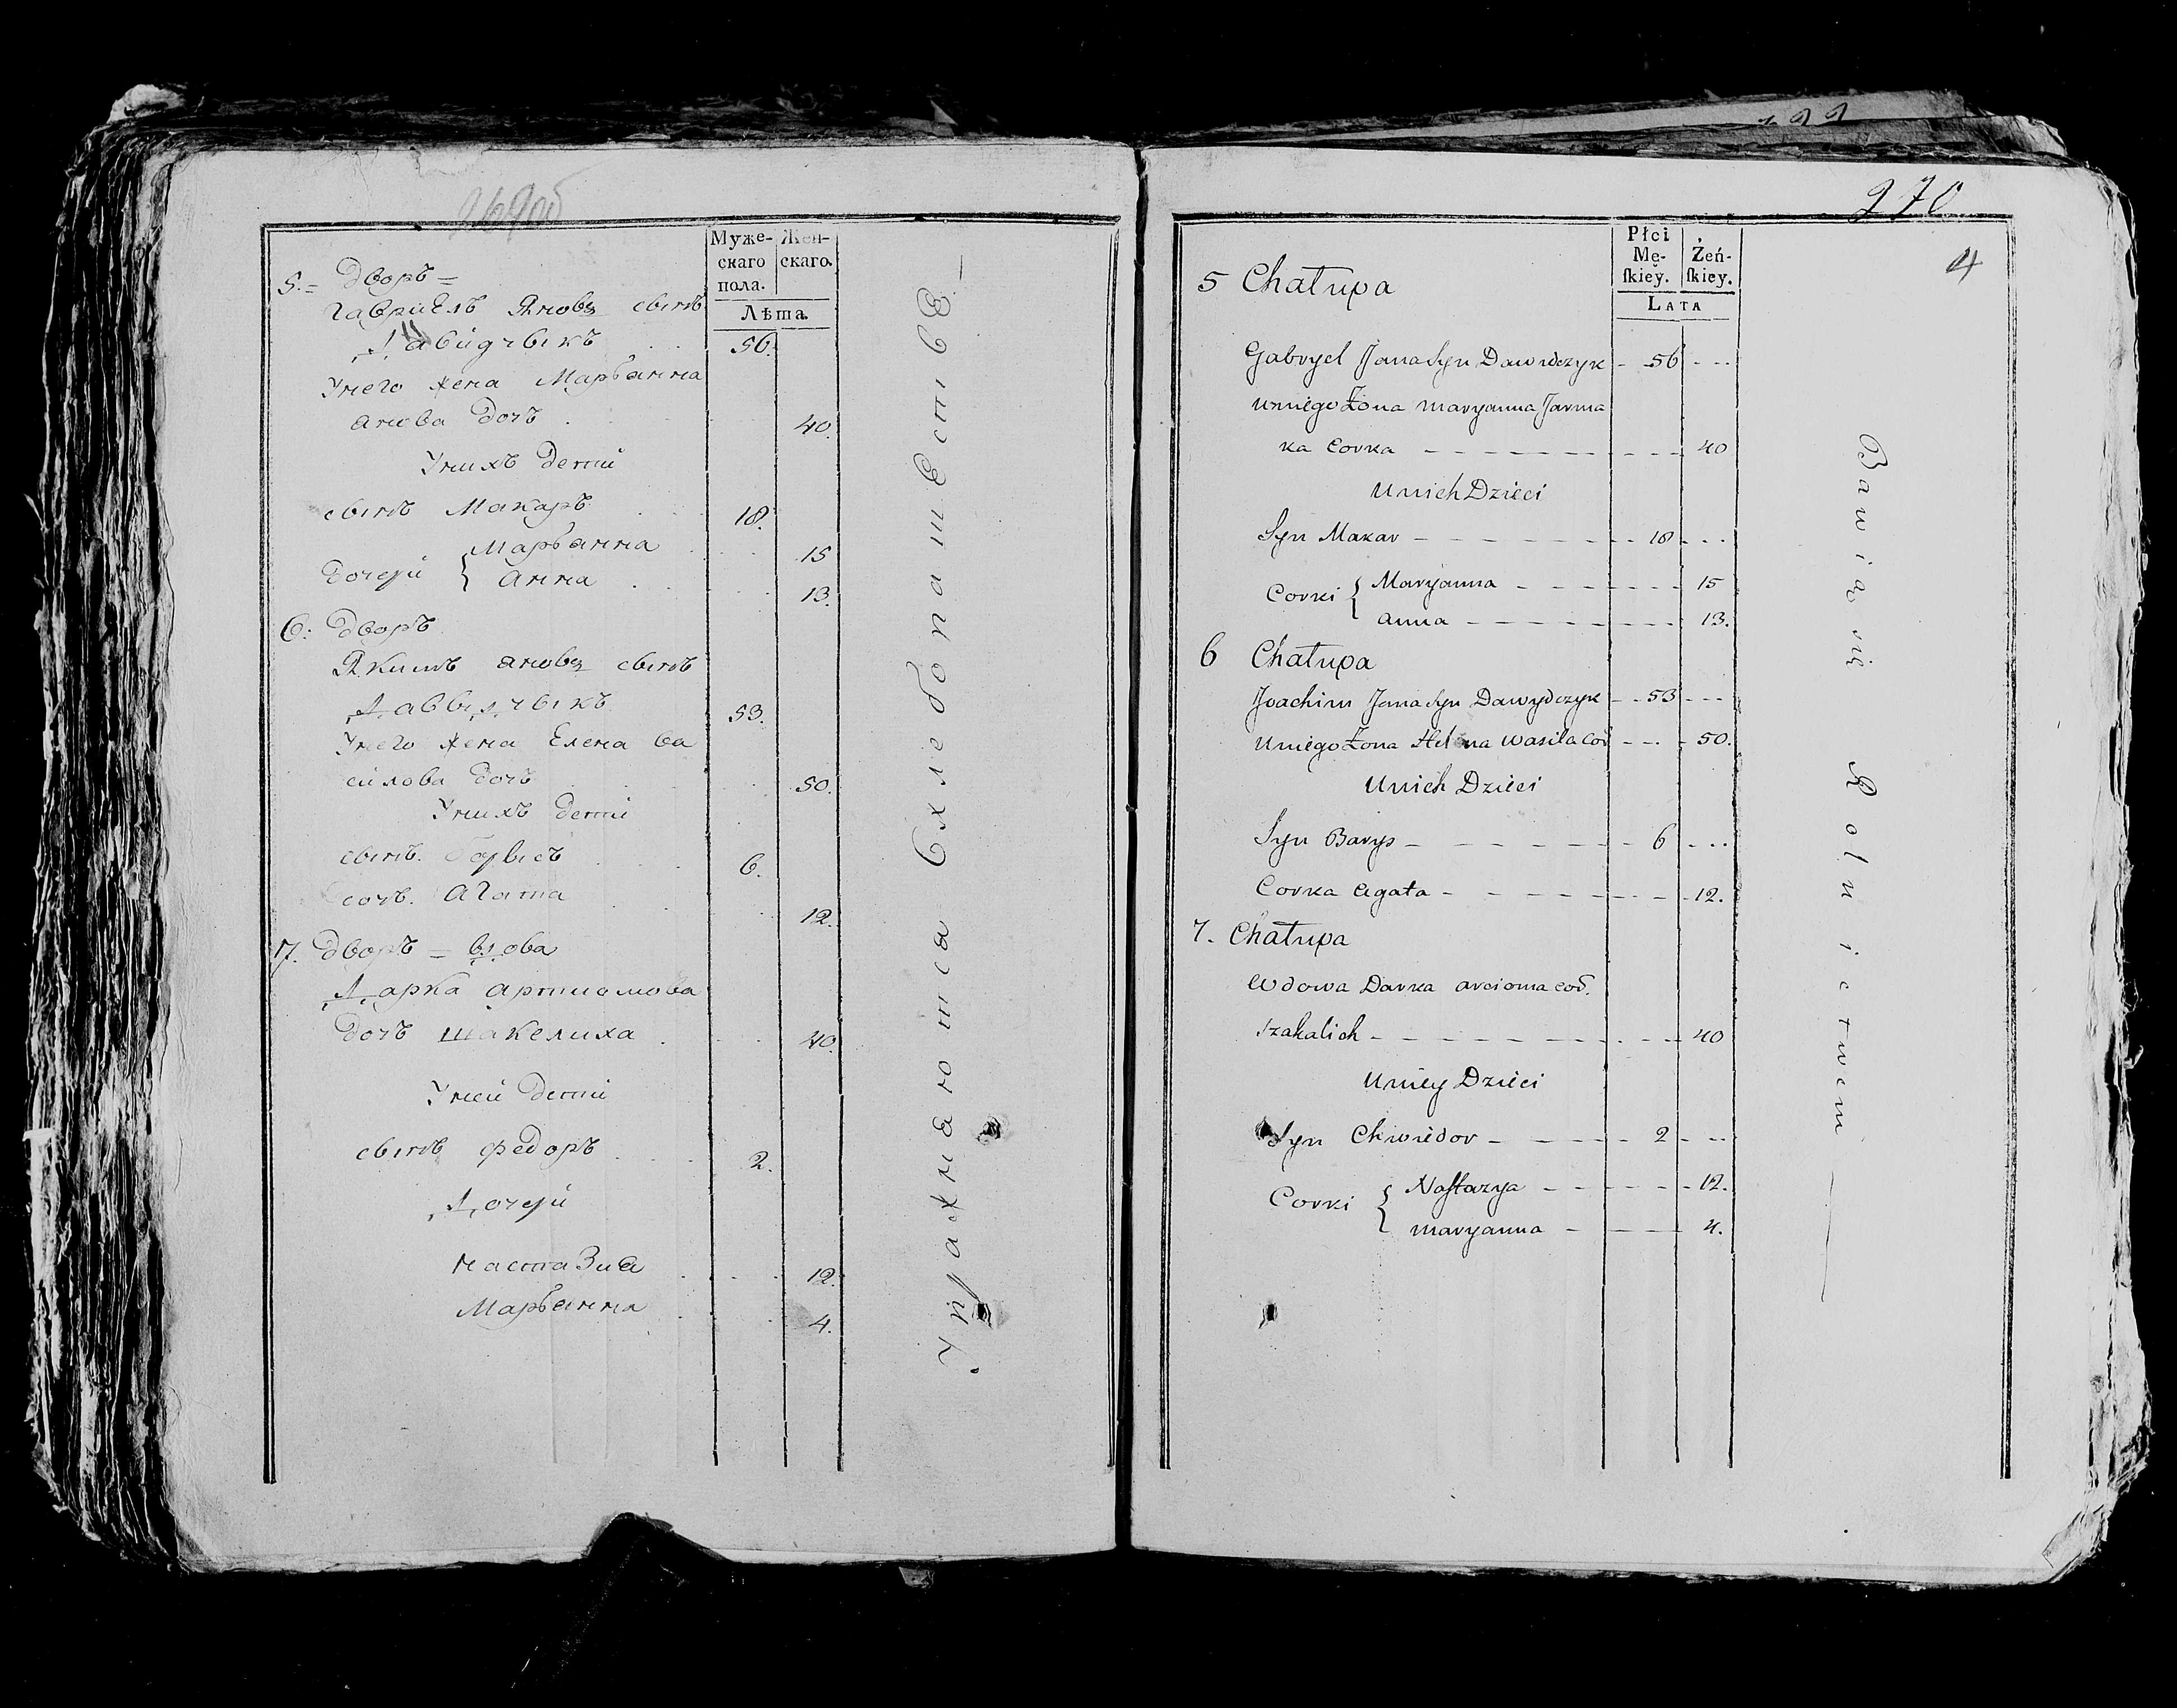 269об
Муже-
скаго
пола.
Жен-
скаго.
Лѣта.
5.= Дворъ =
Гавриель Яновъ сынъ
Давидчыкъ . . 56.
Унего жена Марьянна
Янова дочъ . 40.
Унихъ дети
сынъ Макаръ . . 18.
дочери { Марьянна . . 15
Анна . . 13.
6: Дворъ
Якимъ Яновъ сынъ
Давыдчыкъ 53.
Унего жена Елена Ва
силова дочъ 50.
Унихъ дети
сынъ. Борысъ . . 6.
дочъ. Агата . . 12.
7. Дворъ = вдова
Дарка Артиомова
дочъ Шакелиха . 40.
Уней дети
сынъ Федоръ . . 2.
Дочери
Настазиа . . 12.
Марьянна . . 4.
Упражнаютса вхлебопашестве —
270
4
Płci
Mę-
ſkiey.
Żeń-
ſkiey.
LATA
5 Chałupa
Gabryel Jana Syn Dawidczyk - 56 - - -
Uniego Żona Maryanna Jarma
ka Corka - - - - 40
Unich Dzieci
Syn Makar - - - - 18 - - -
Corki { Maryanna - - - - 15
Anna - - - - 13.
6 Chałupa
Joachim Jana Syn Dawydczyk - - 53 - - -
Uniego Żona Helena Wasila Cor - - - 50.
Unich Dzieci
Syn Barys - - - - 6 - - -
Corka Agata - - - - 12.
7. Chałupa
Wdowa Darka Arcioma Cor.
Szakalich - - - - 40
Uniey Dzieci
Syn Chwiedor - - - - 2 - - -
Corki { Naſtazya - - - - 12.
Maryanna - - - 4.
Bawią się Rolnictwem —